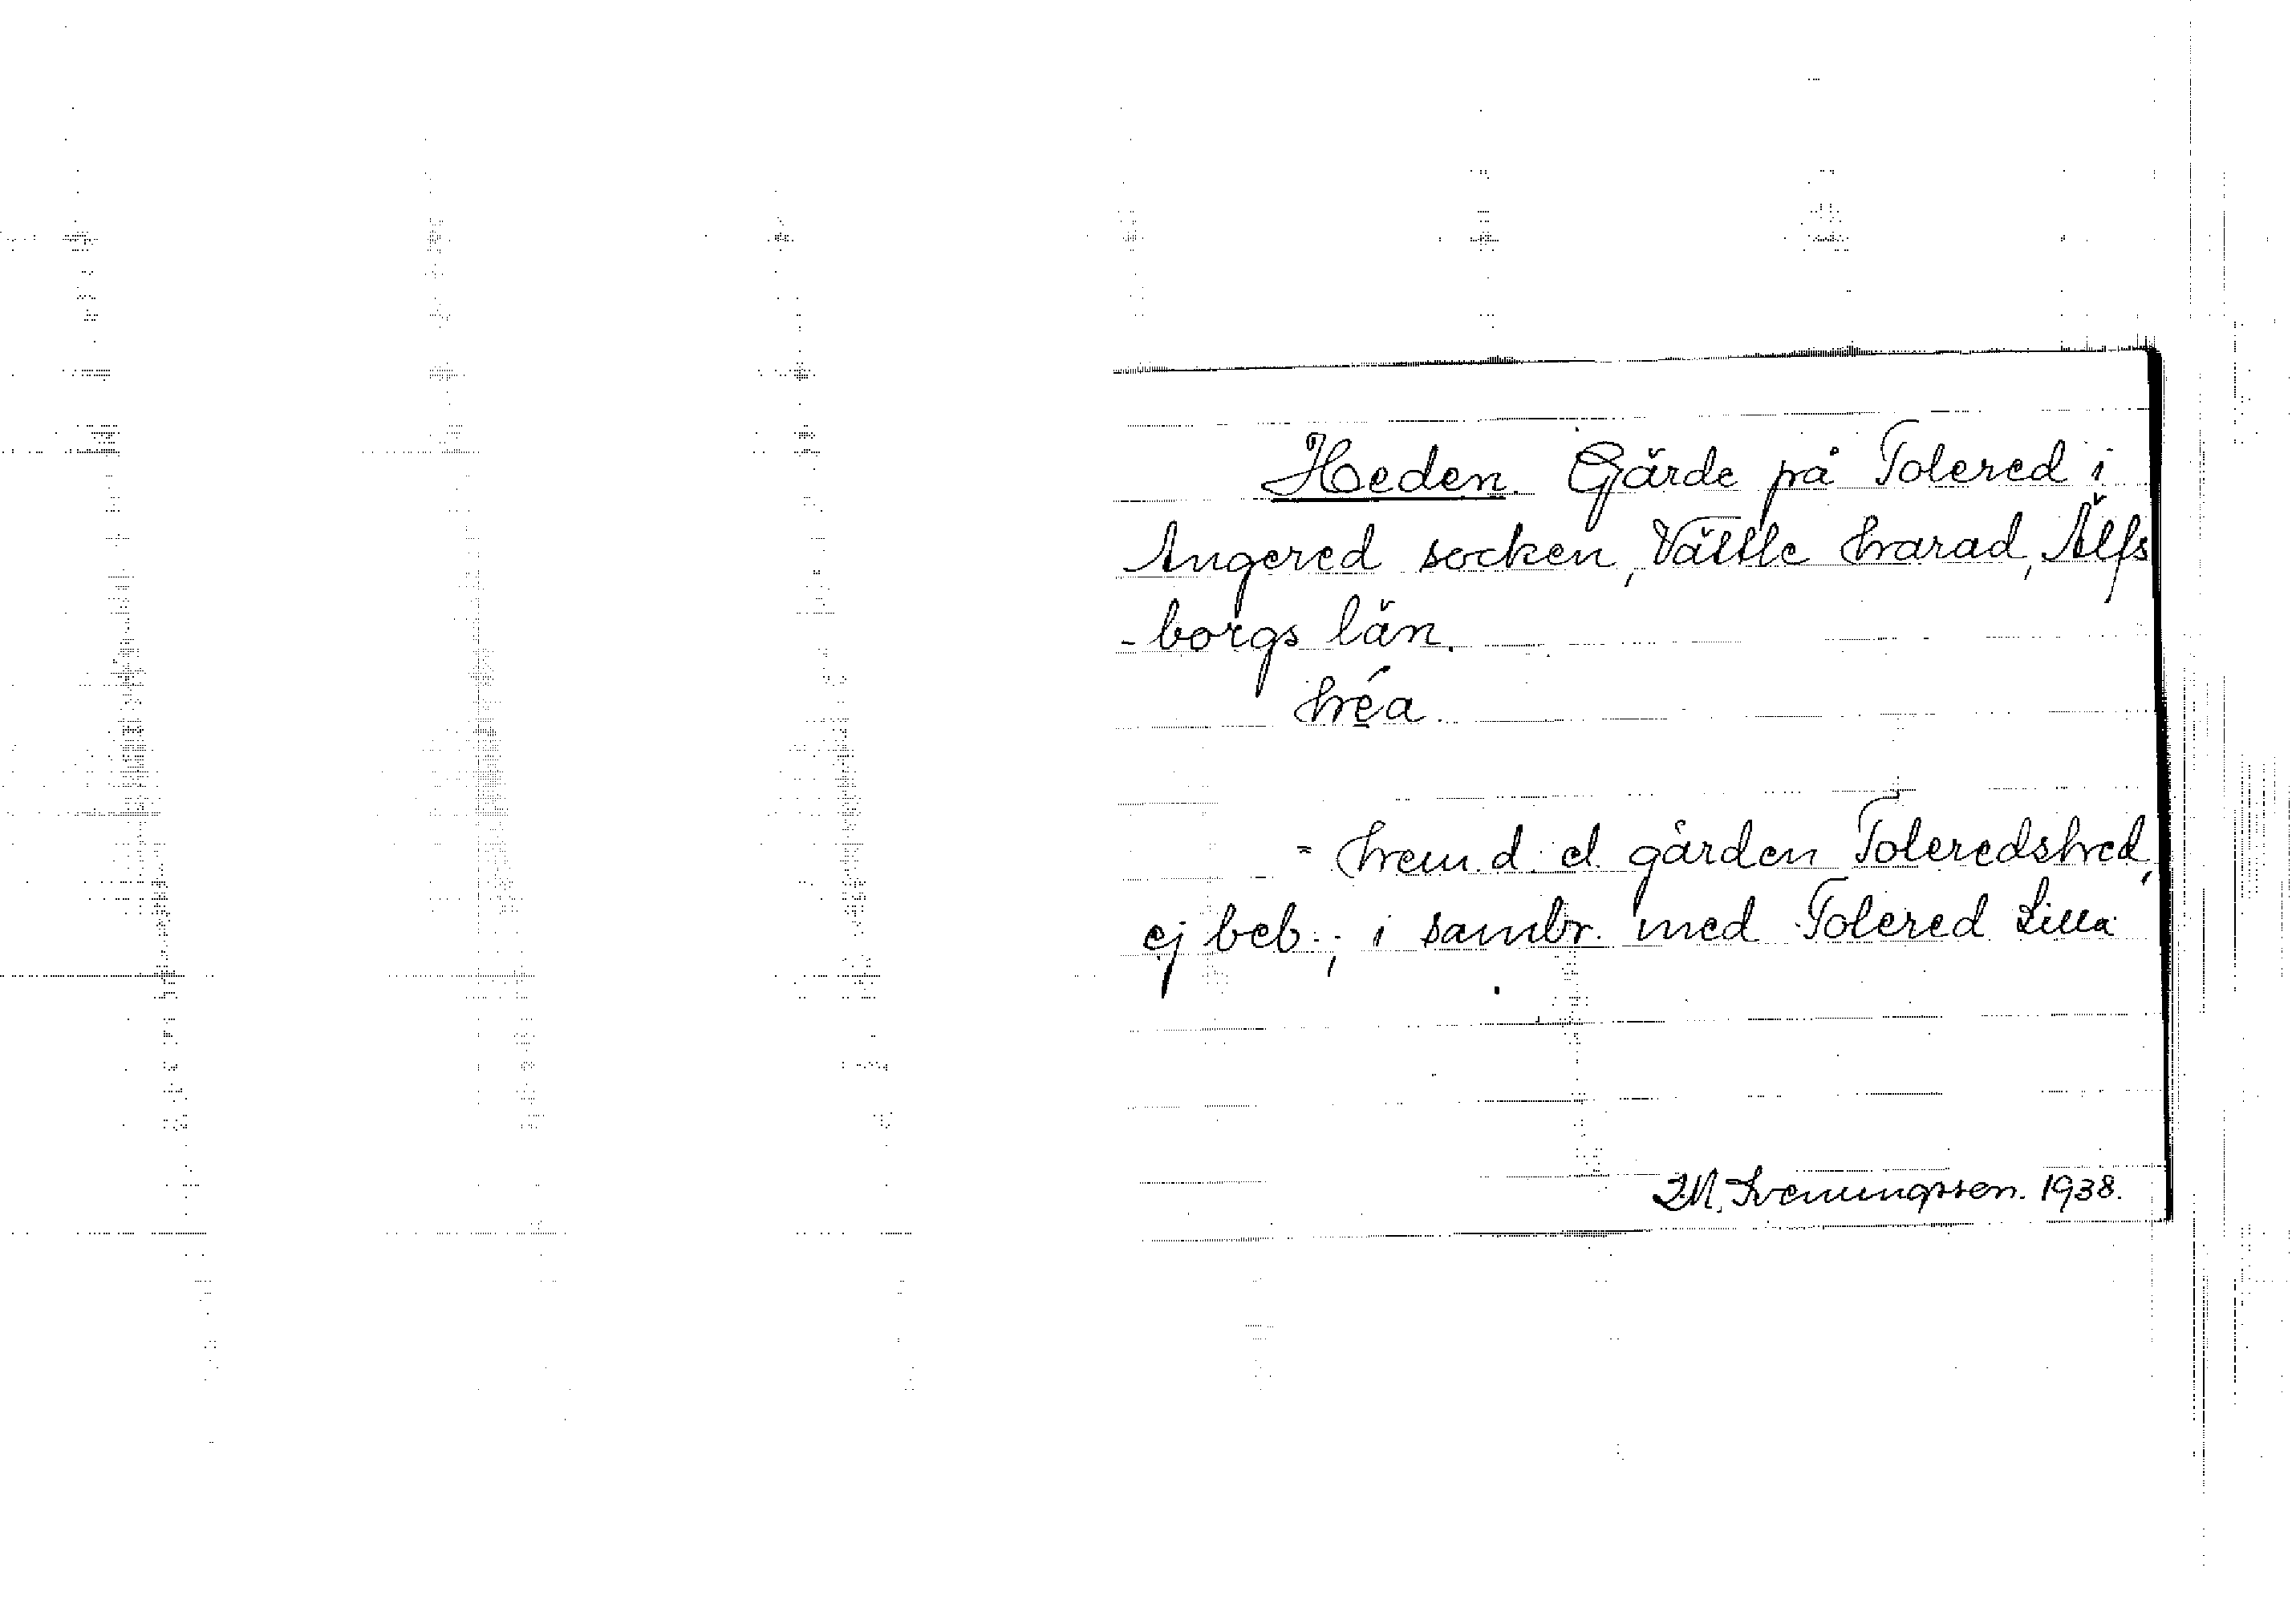 Heden. Gärde på Tolered i
Angered socken, Vättle härad, Älfs
-borgs län.
héa.
= hem. d. el. gården Toleredshed,
ej beb.; i sambr. med Tolered Lilla
I.M. Sveningsson. 1938.